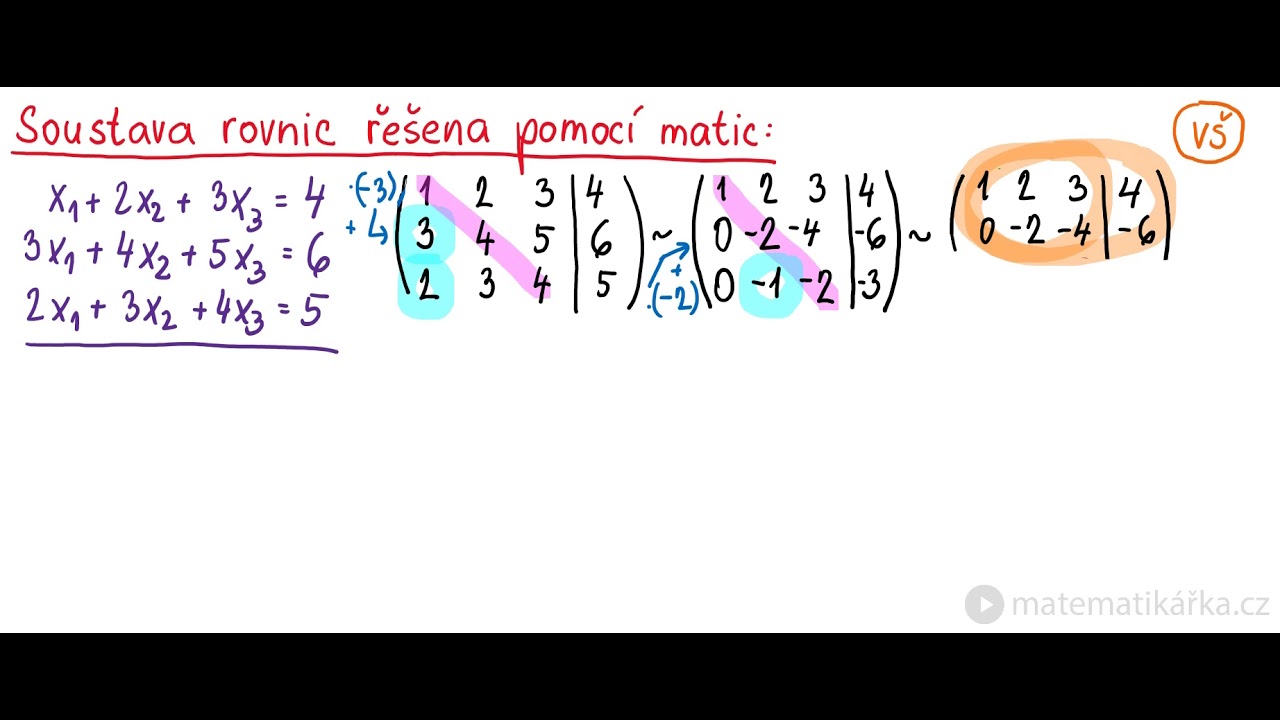 Soustava rovnic řešena pomocí matic:
VŠ
x₁ + 2x₂ + 3x₃ = 4
3x₁ + 4x₂ + 5x₃ = 6
2x₁ + 3x₂ + 4x₃ = 5
·(-3) ( 1 2 3 | 4 ) ~ ( 1 2 3 | 4 ) ~ ( 1 2 3 | 4 )
+ ( 3 4 5 | 6 ) ( 0 -2 -4 | -6 ) ( 0 -2 -4 | -6 )
( 2 3 4 | 5 ) + ·(-2) ( 0 -1 -2 | -3 )
matematikářka.cz